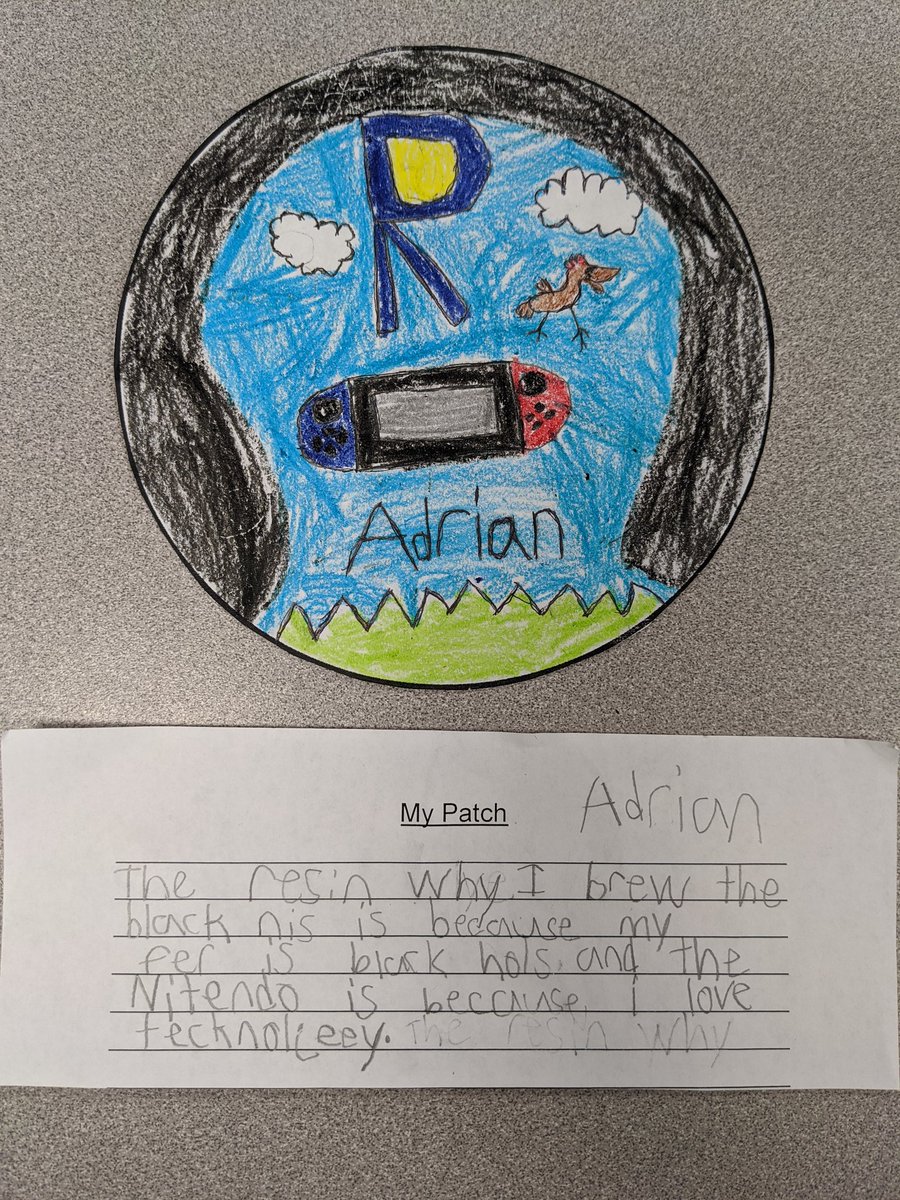 R
Adrian
My Patch
Adrian
The resin why I brew the
black nis is because my
fer is black hols and the
Nitendo is beccause i love
tecknolgeey. The resin why